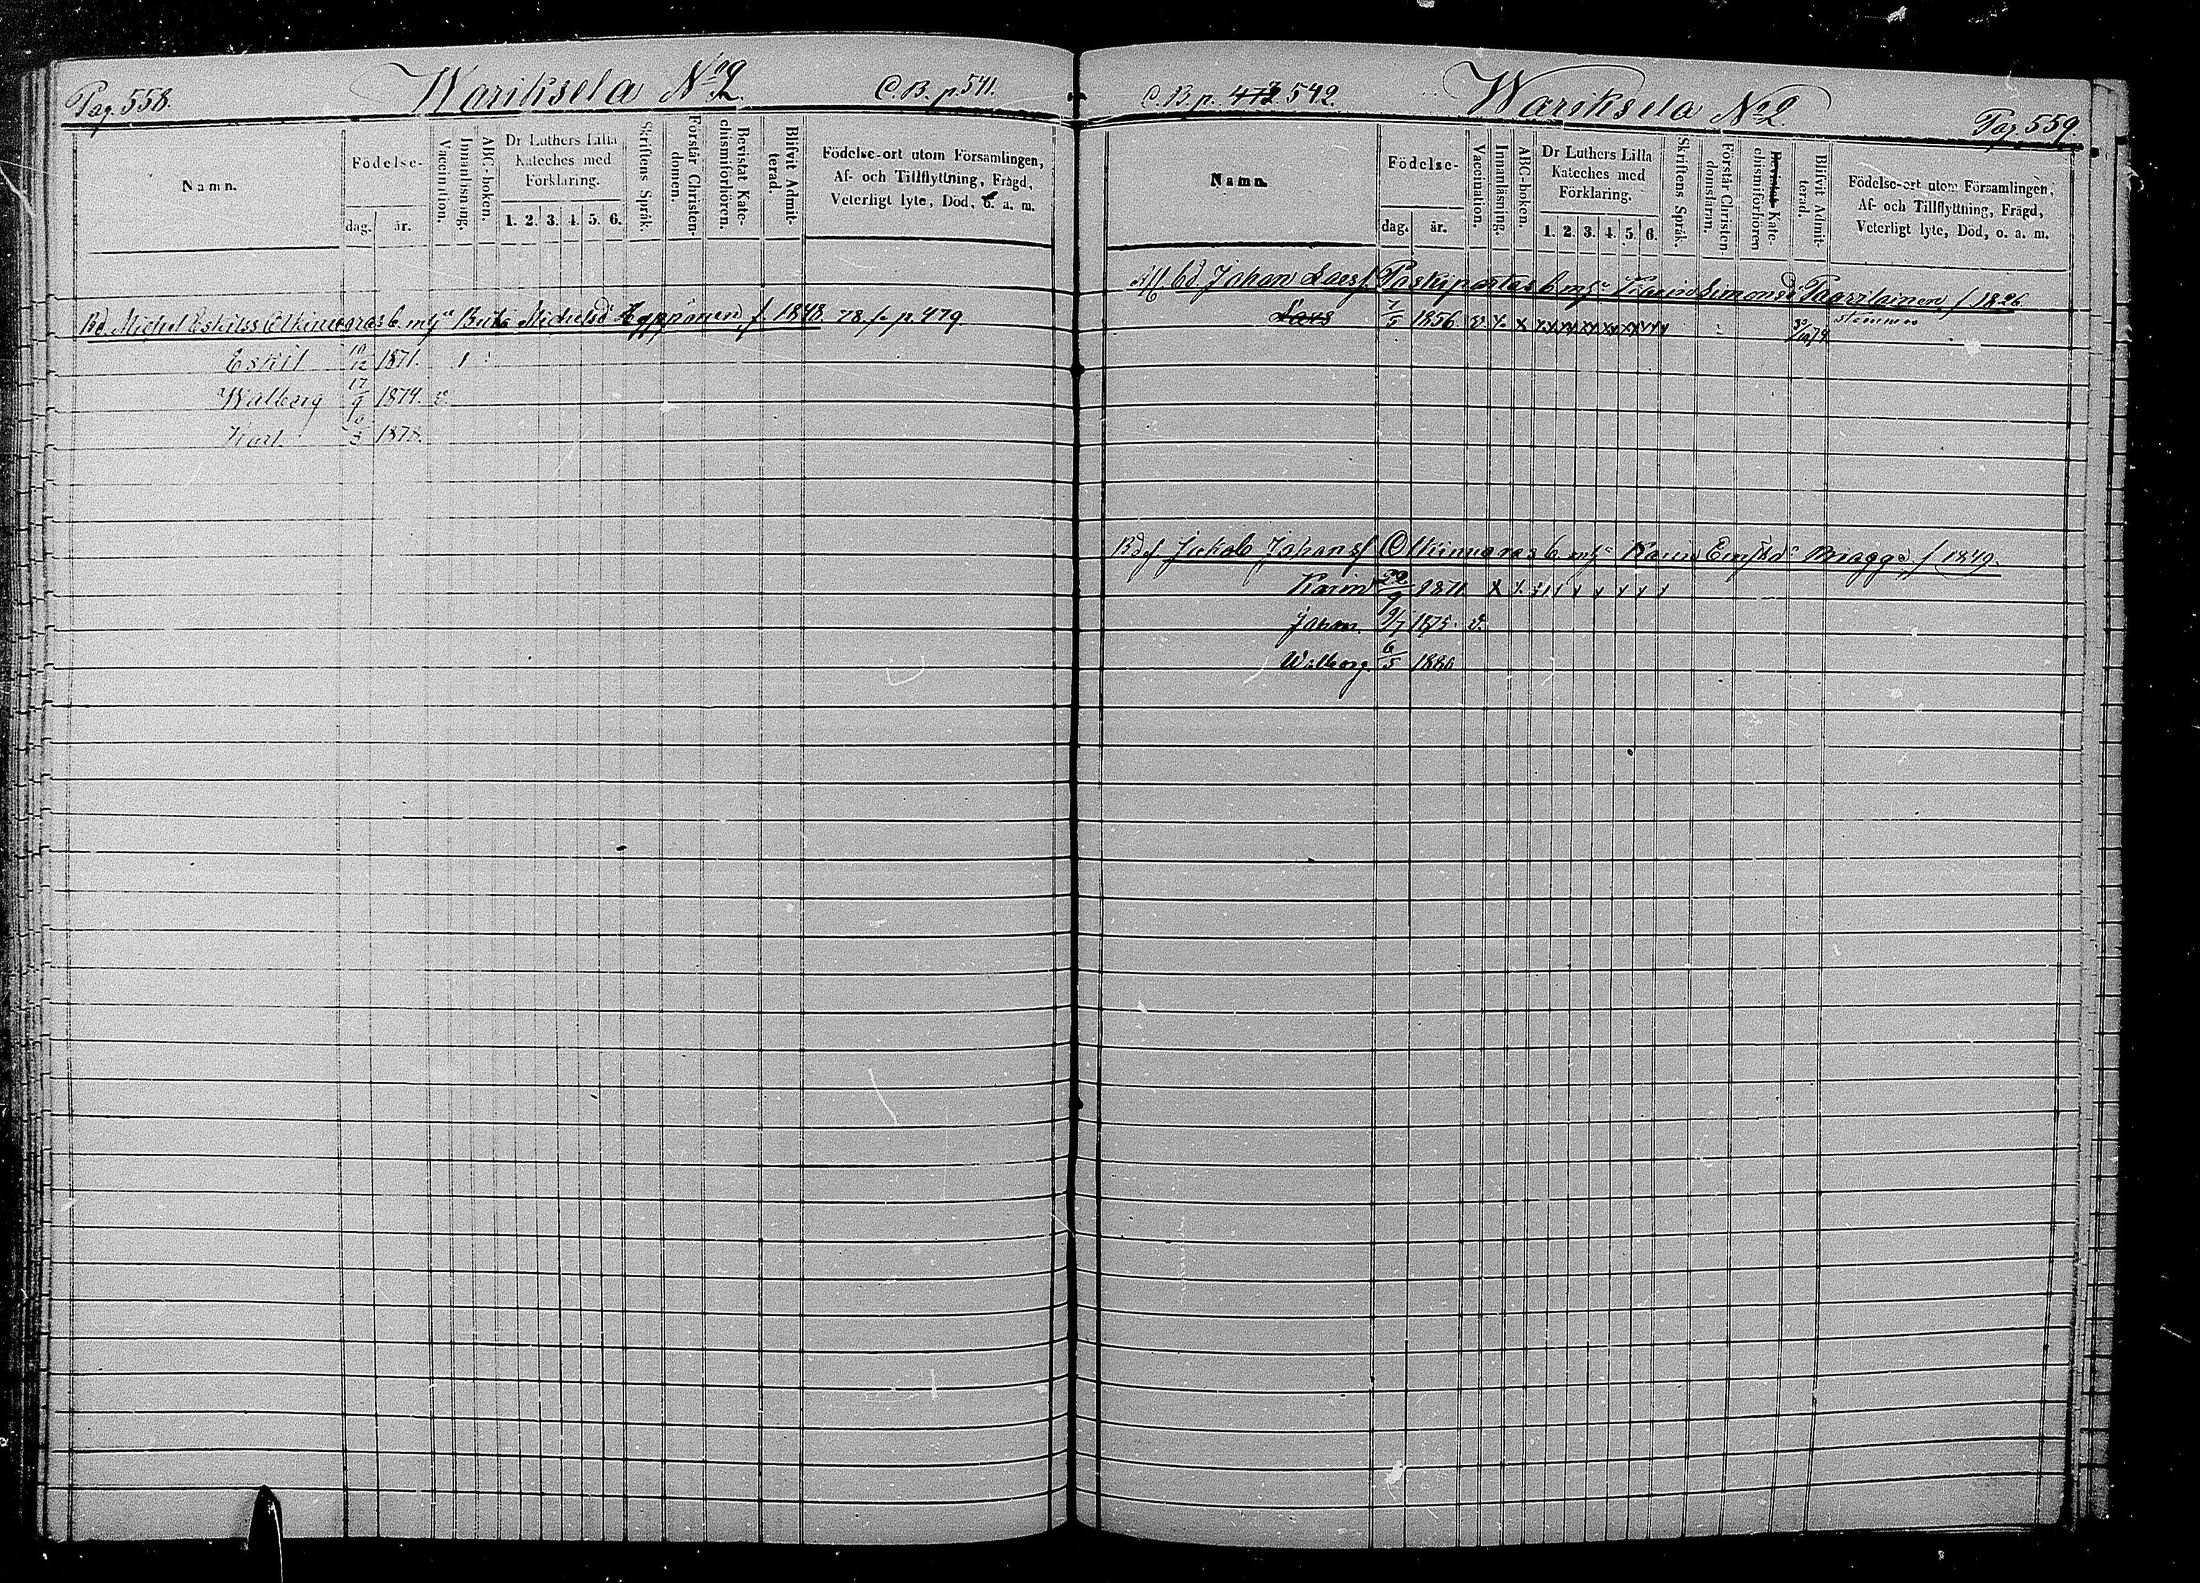 Pag. 558.
Wariksela No 2
C.B. p. 541.
Namn.
Födelse-
dag.
år.
Vaccination.
Innanläsning.
ABC-boken.
Dr Luthers Lilla
Kateches med
Förklaring.
1. 2. 3. 4. 5. 6.
Skriftens Språk.
Förstår Christen-
domen.
Bevistat Kate-
chismiförhören.
Blifvit Admit-
terad.
Födelse-ort utom Församlingen,
Af- och Tillflyttning, Frägd,
Veterligt lyte, Död, o. a. m.
Bd. Michel Eskilss Olkinuoras b. m hu Brita Michelsdr Hyppönen f 1848. 78. fr. p. 479
Eskil 10/12 1871.
Walberg 17/9 1874. v.
Karl 10/3 1878.
C.B. p. 472 542.
Wariksela No 2.
Pag. 559.
Namn.
Födelse-
dag.
år.
Vaccination.
Innanläsning.
ABC-boken.
Dr Luthers Lilla
Kateches med
Förklaring.
1. 2. 3. 4. 5. 6.
Skriftens Språk.
Förstår Christen-
domsläran.
Bevistat Kate-
chismiförhören
Blifvit Admit-
terad.
Födelse-ort utom Församlingen,
Af- och Tillflyttning, Frägd,
Veterligt lyte, Död, o. a. m.
Afl. bd Johan Larsf. Paskipartas b. m hu Karin Simonsdr Kaarilainen f 1826
Lars 7/5 1856 v x x
Bdf Jakob Johansf Olkinuoras b. m hu Karin Emfsdr Magga f 1849.
Karin 1871 x
Johan 9/7 1875. v.
Walborg. 6/5 1880